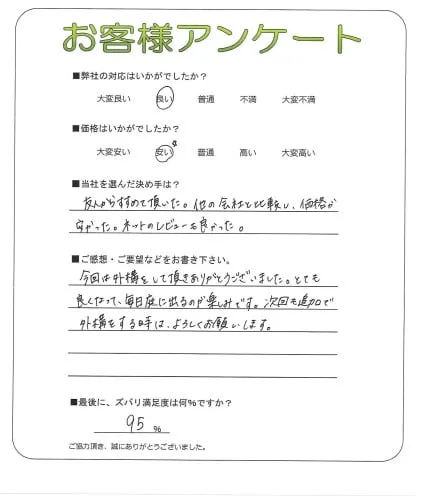 お客様アンケート
■弊社の対応はいかがでしたか?
大変良い 良い 普通 不満 大変不満
■価格はいかがでしたか?
大変安い 安い 普通 高い 大変高い
■当社を選んだ決め手は?
友人からすすめて頂いた。他の会社と比較し、価格が
安かった。ネットのレビューも良かった。
■ご感想・ご要望などをお書き下さい。
今回は外構をして頂きありがとうございました。とても
良くなって、毎日庭に出るのが楽しみです。次回も追加で
外構をする時は、よろしくお願いします。
■最後に、ズバリ満足度は何%ですか?
95 %
ご協力頂き、誠にありがとうございました。